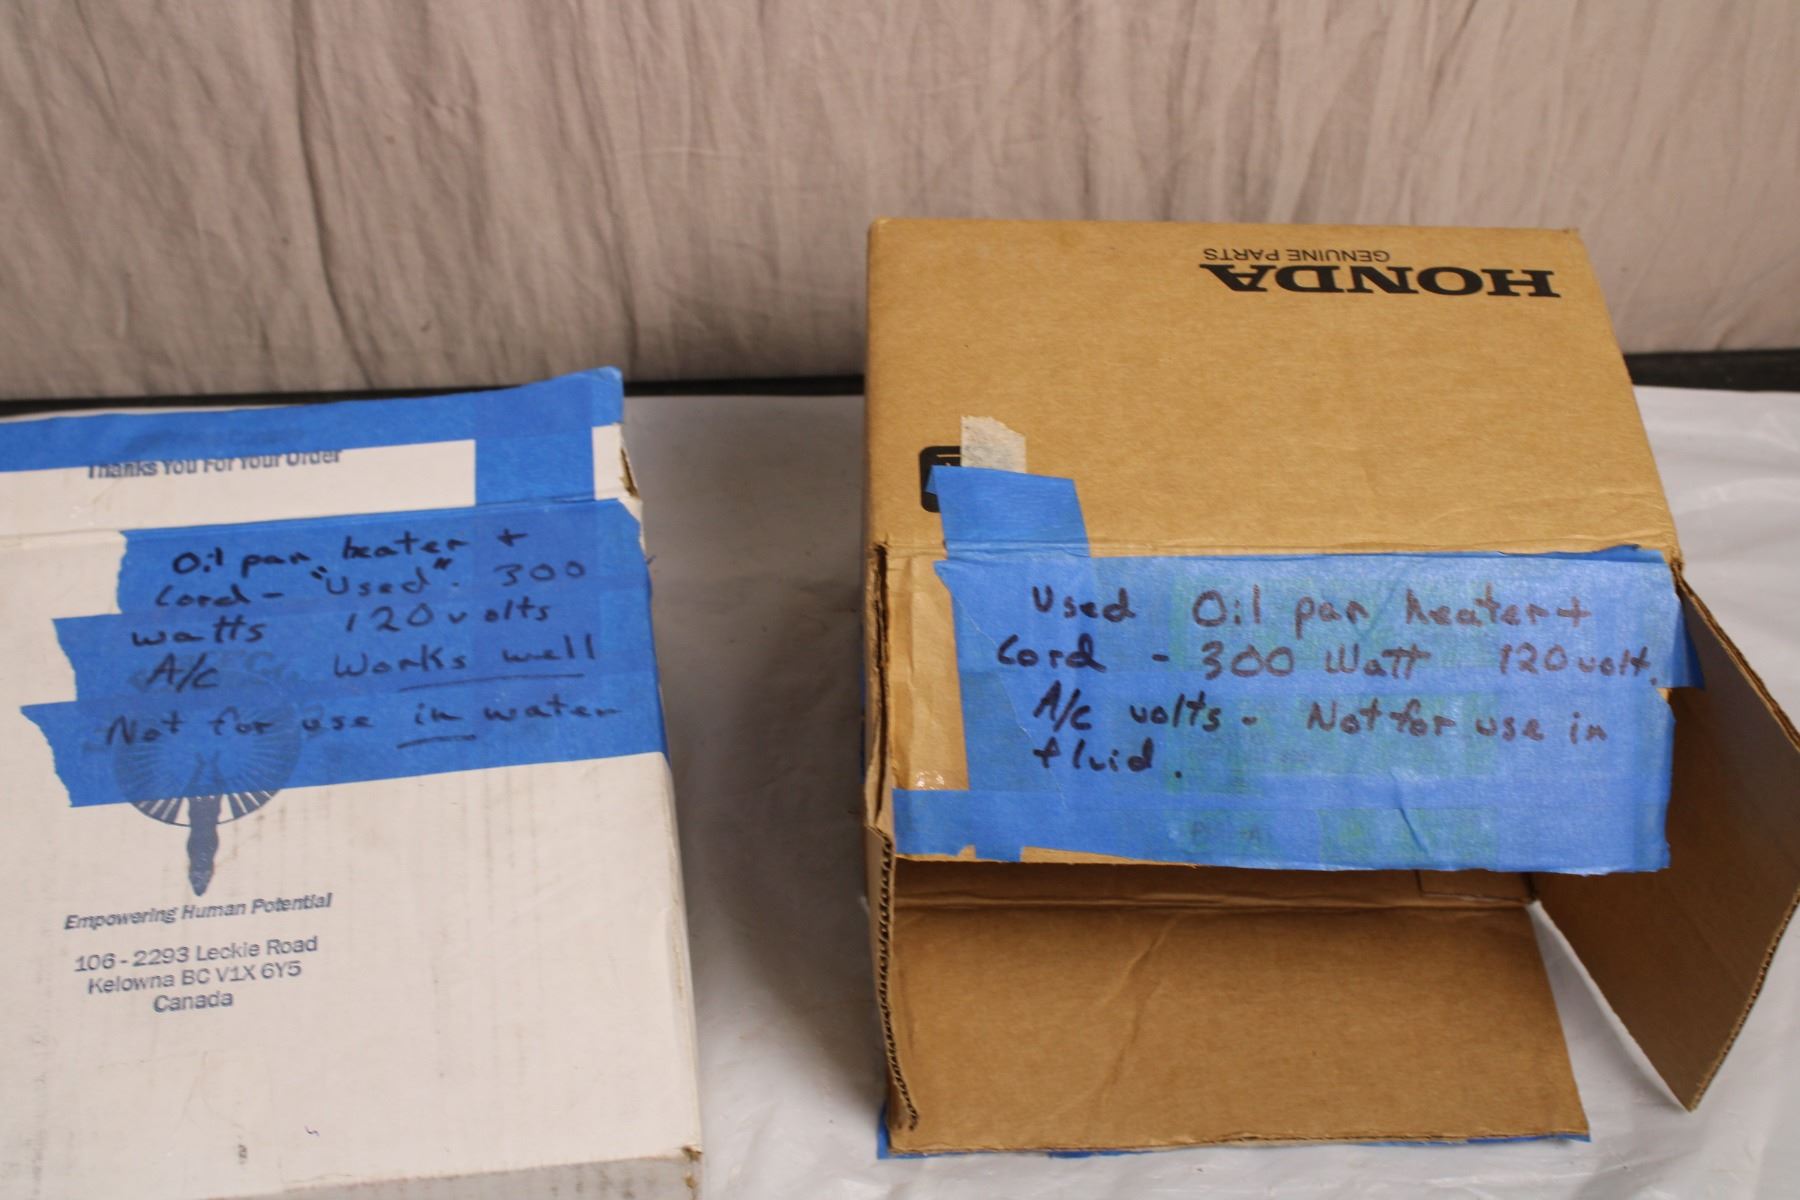 Thanks You For Your Order
Oil pan heater +
Cord - "Used". 300
watts 120 volts
A/C Works well
Not for use in water
Empowering Human Potential
106 - 2293 Leckie Road
Kelowna BC V1X 6Y5
Canada
HONDA
GENUINE PARTS
Used Oil pan heater +
Cord - 300 Watt 120 volt.
A/C volts - Not for use in
fluid.